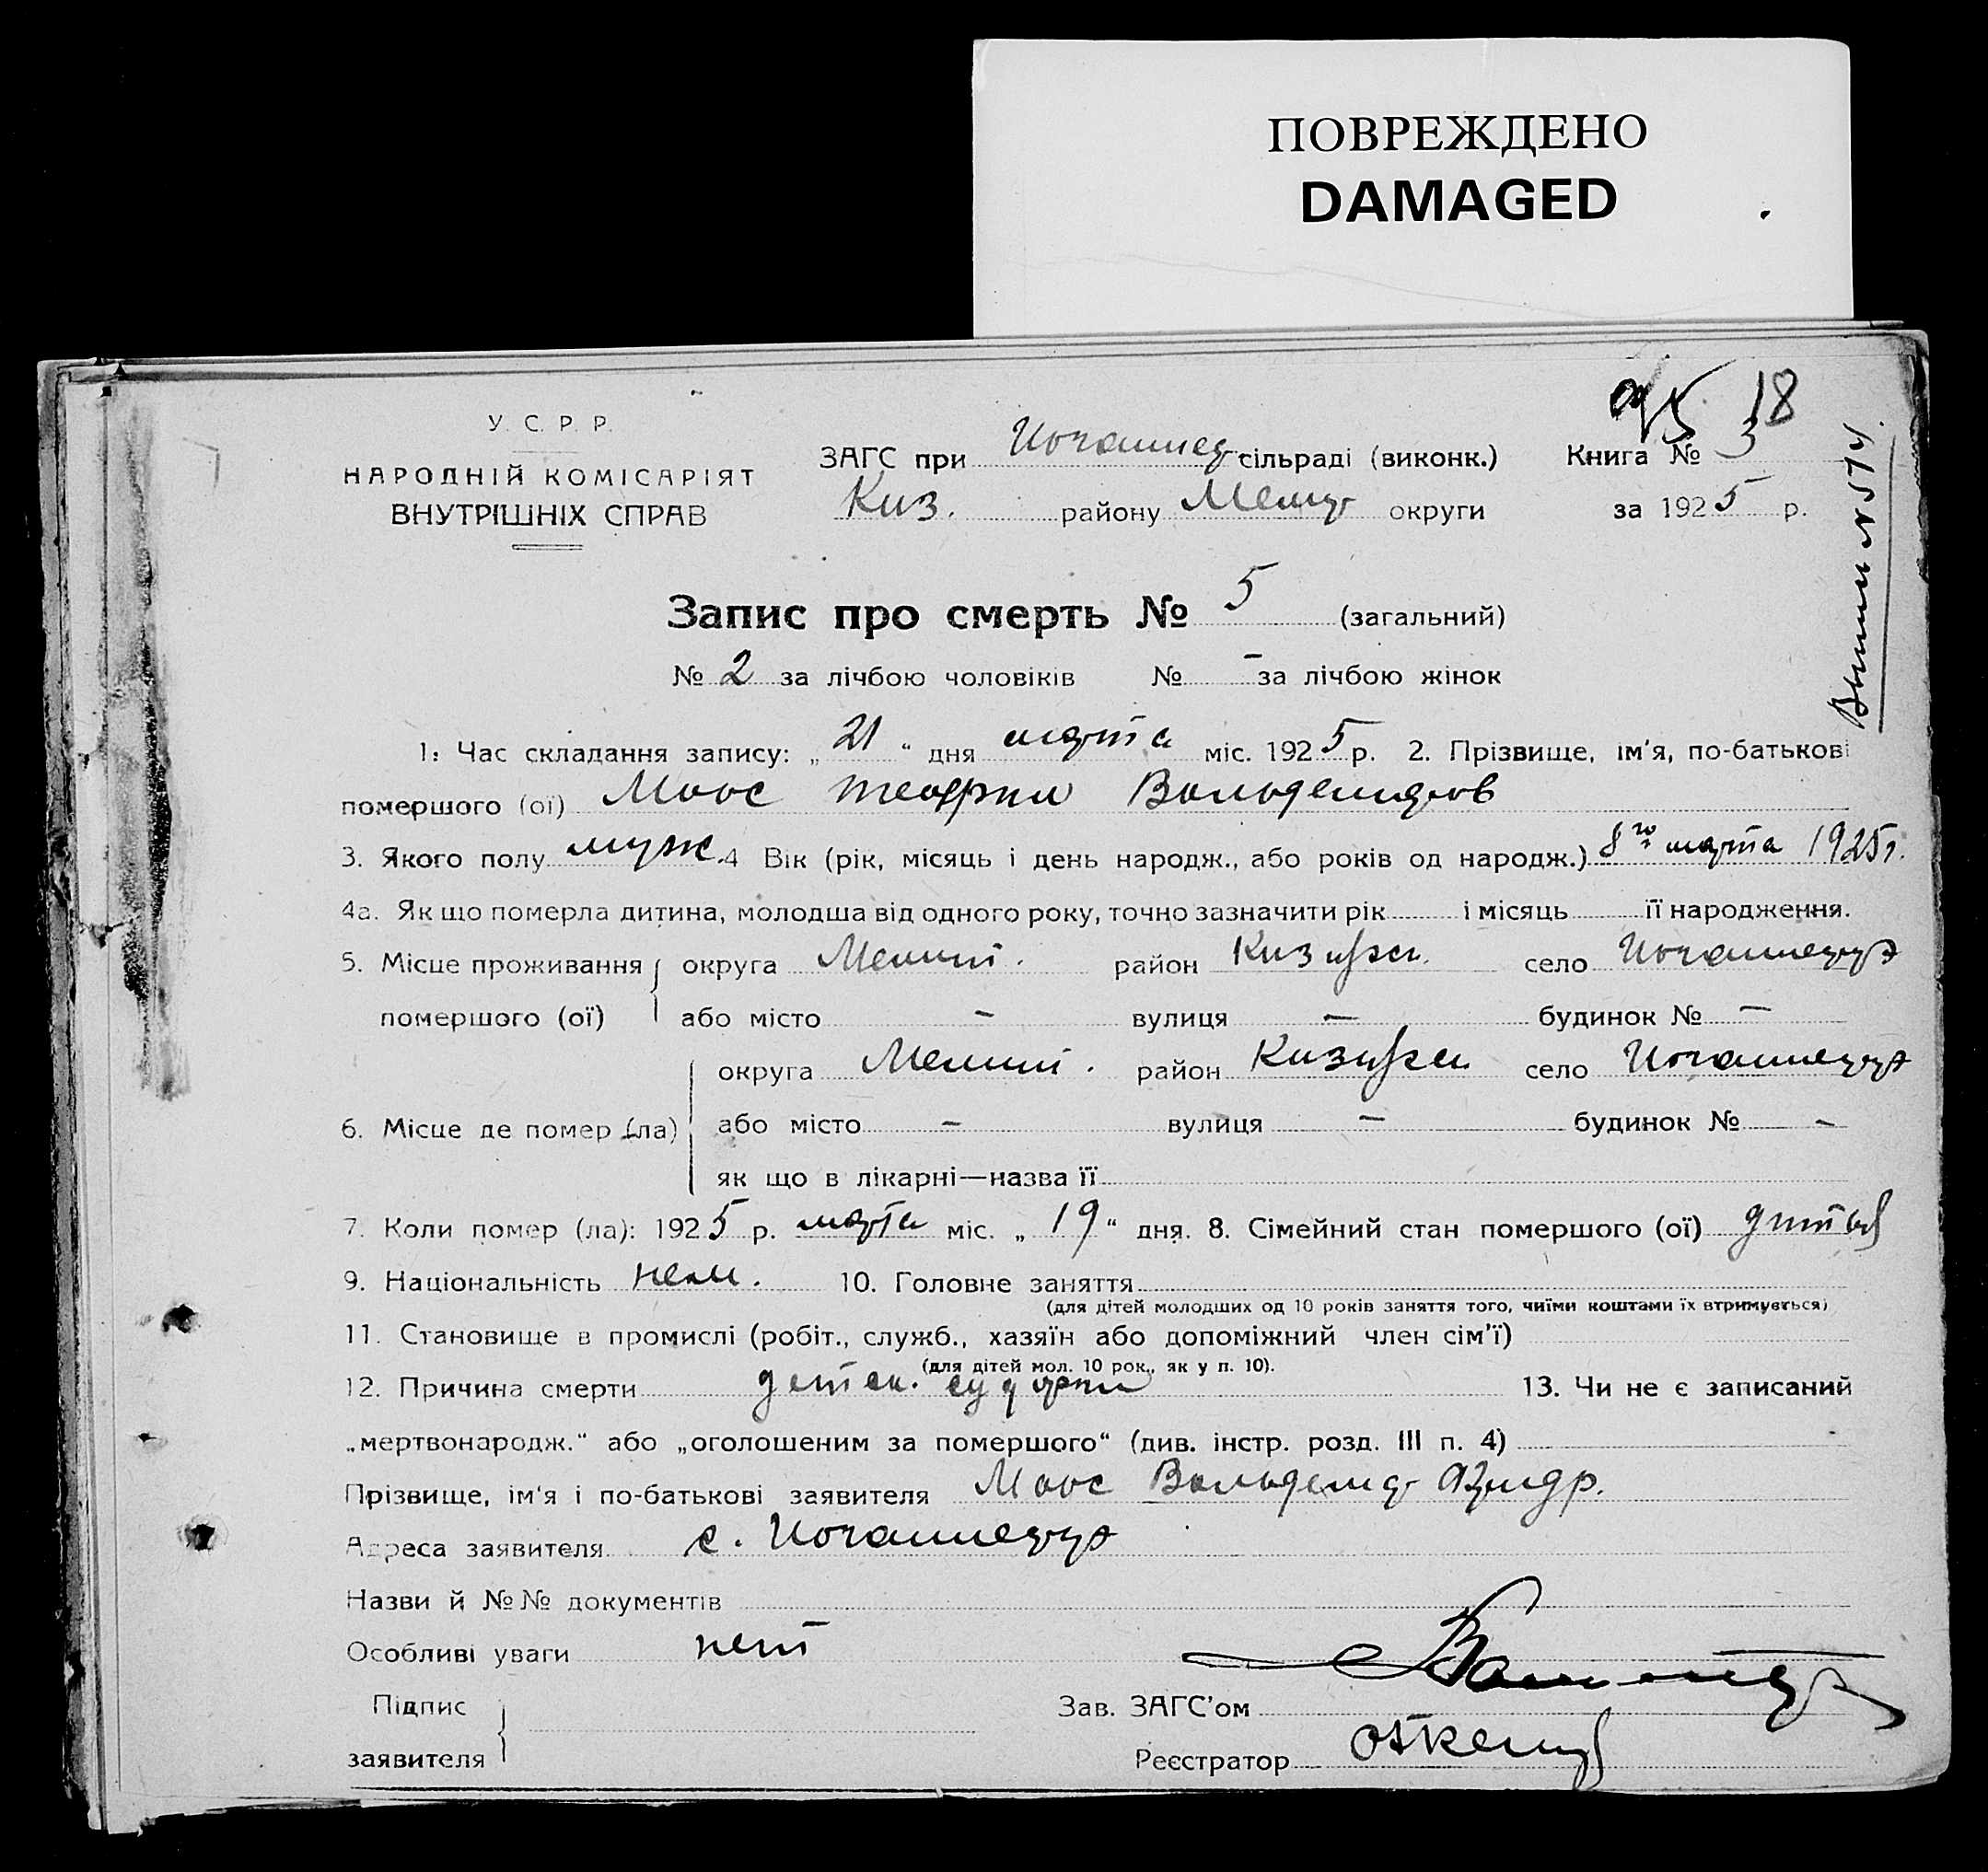 ПОВРЕЖДЕНО
DAMAGED
18
У. С. Р. Р.
НАРОДНІЙ КОМІСАРІЯТ
ВНУТРІШНІХ СПРАВ
ЗАГС при сільраді (виконк.)
Киз. району округи
Книга № 3
за 1925 р.
Запис про смерть № 5 (загальний)
№ 2 за лічбою чоловіків № – за лічбою жінок
1. Час складання запису: „21“ дня марта міс. 1925 р. 2. Прізвище, ім'я, по-батькові
помершого (ої) Маос Вольдемаров
3. Якого полу муж. 4 Вік (рік, місяць і день народж., або років од народж.) 8го марта 1925 г.
4а. Як що померла дитина, молодша від одного року, точно зазначити рік і місяць її народження.
5. Місце проживання помершого (ої) округа Мелит. район село
або місто – вулиця – будинок № –
6. Місце де помер (ла) округа Мелит. район село
або місто – вулиця – будинок № –
як що в лікарні—назва її
7. Коли помер (ла): 1925 р. марта міс. „19“ дня. 8. Сімейний стан помершого (ої)
9. Національність нем. 10. Головне заняття
(для дітей молодших од 10 років заняття того, чиїми коштами їх втримується)
11. Становище в промислі (робіт., служб., хазяїн або допоміжний член сім'ї)
(для дітей мол. 10 рок., як у п. 10).
12. Причина смерти детск. 13. Чи не є записаний
„мертвонародж.“ або „оголошеним за помершого“ (див. інстр. розд. III п. 4)
Прізвище, ім'я і по-батькові заявителя Маос Вольдемар
Адреса заявителя с.
Назви й №№ документів
Особливі уваги нет
Підпис
заявителя
Зав. ЗАГС'ом
Реєстратор